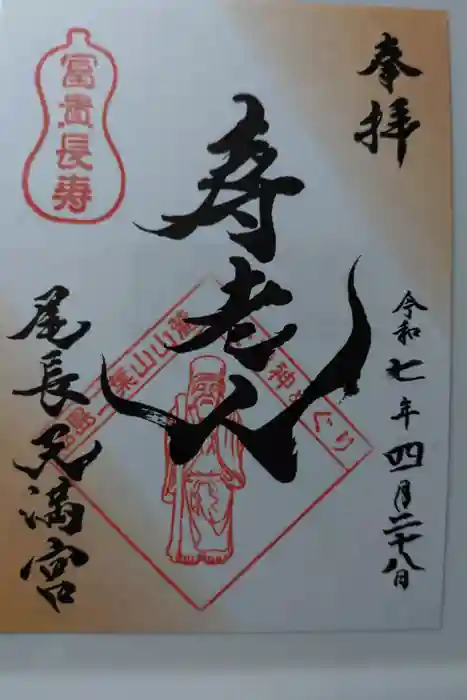 奉拝
令和七年四月二十八日
寿老人
島二葉山山麓
神めぐり
富貴長寿
尾長天満宮